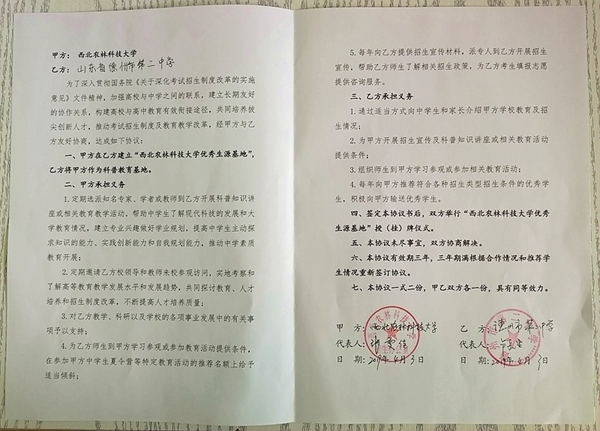 甲方：西北农林科技大学
乙方：山东省德州市第二中学
为了深入贯彻国务院《关于深化考试招生制度改革的实施
意见》文件精神，加强高校与中学之间的联系，建立长期友好
的协作关系，构建高校与高中教育有效衔接途径，共同培养拔
尖创新人才，推动考试招生制度及教育教学改革，经甲方与乙
方友好协商，达成如下协议：
一、甲方在乙方建立“西北农林科技大学优秀生源基地”，
乙方将甲方作为科普教育基地。
二、甲方承担义务
1.定期选派知名专家、学者或教师到乙方开展科普知识讲
座或相关教育教学活动，帮助中学生了解现代科技的发展和大
学教育情况，建立专业兴趣做好学业规划，提高中学生主动探
求知识的能力、实践创新能力和自我规划能力，推动中学素质
教育开展；
2.定期邀请乙方校领导和教师来校参观访问，实地考察和
了解高等教育教学发展水平和发展趋势，共同探讨教育、人才
培养和招生制度改革，不断提高人才培养质量；
3.对乙方教学、科研以及学校的各项事业发展中的有关事
项予以支持；
4.为乙方师生到甲方学习参观或参加教育活动提供条件，
在参加甲方中学生夏令营等特定教育活动的推荐名额上给予
适当倾斜；
5.每年向乙方提供招生宣传材料，派专人到乙方开展招生
宣传，帮助乙方师生了解相关招生政策，为乙方考生填报志愿
提供咨询服务。
三、乙方承担义务
1.通过适当方式向中学生和家长介绍甲方学校教育及招
生情况；
2.为甲方开展招生宣传及科普知识讲座或相关教育活动
提供条件；
3.组织师生到甲方学习参观或参加相关教育活动；
4.每年向甲方推荐符合各种招生类型招生条件的优秀学
生，积极向甲方输送优秀学生。
四、签定本协议书后，双方举行“西北农林科技大学优秀
生源基地”授（挂）牌仪式。
五、本协议未尽事宜，双方协商解决。
六、本协议有效期三年，三年期满根据合作情况和推荐学
生情况重新签订协议。
七、本协议一式二份，甲乙双方各一份，具有同等效力。
甲 方：西北农林科技大学
代表人：
日 期：2019年4月3日
乙 方：德州市第二中学
代表人：
日 期：2019年4月3日